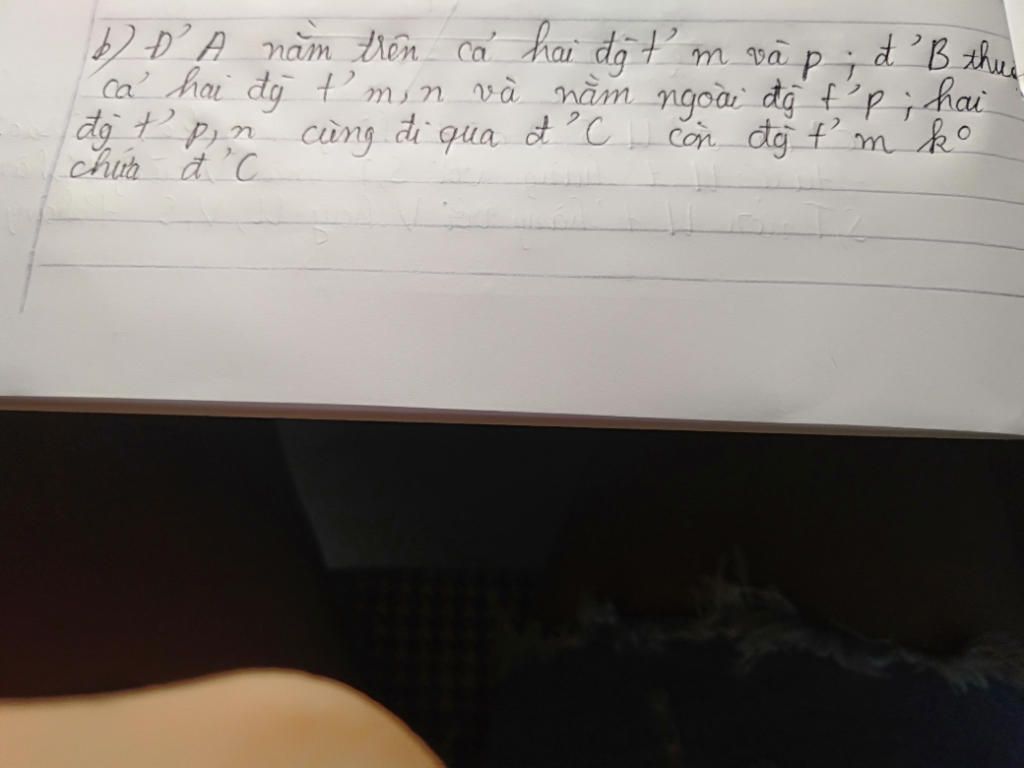 b) Đ' A nằm trên cả hai đg̃ t' m và p ; đ' B thuộc
cả hai đg̃ t' m, n và nằm ngoài đg̃ t' p ; hai
đg̃ t' p, n cùng đi qua đ' C còn đg̃ t' m kº
chứa đ' C